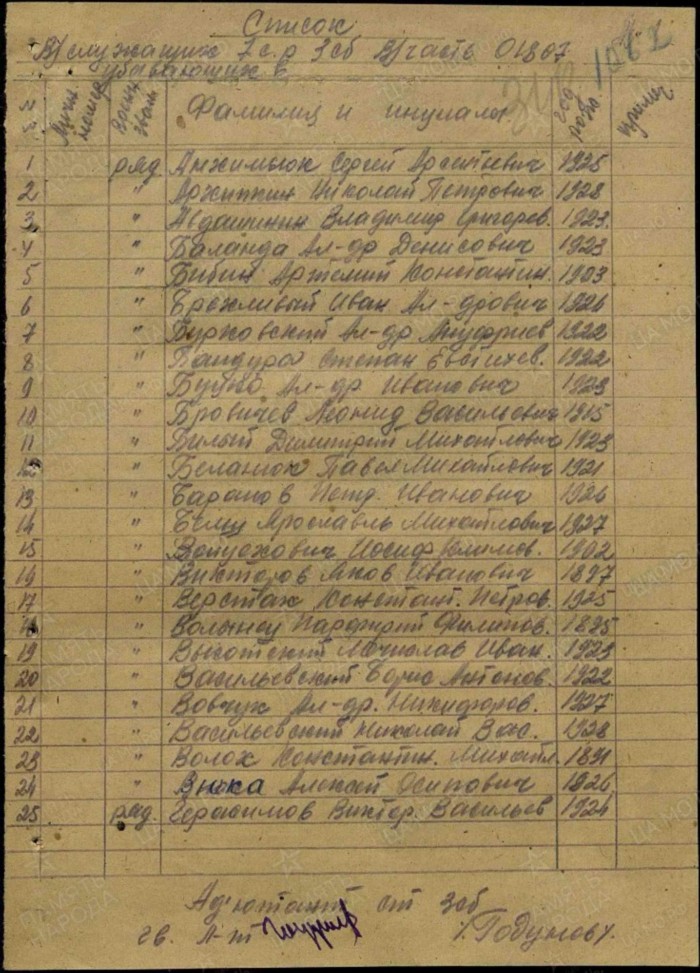 Список
В/служащих 7 с.р 3сб в/часть 01807
убывающих в
1082
№ Личн номер воин зван Фамилия и инициала год рожд. примеч
1 ряд Анжимьюк Сергей 1925
2 " Архипкин Николай Петрович 1928
3 " Авдашинин Владимир Григоров. 1923.
4 " Баланда Ал-др Денисович 1923
5 " Бибин Артемий Константин. 1903
6 " Брежливый Иван Ал-дрович 1926
7 " Бурковский Ал-др Ануфриев 1922
8 " Пандура Степан Евстихев. 1922
9 " Буцко Ал-др Иванович 1923
10 " Бровичев Леонид Васильевич 1915
11 " Билый Димитрий Михайлович 1923
12 " Беланюк Павел Михайлович 1921
13 " Баранов Петр. Иванович 1926
14 " Ярославль Михайлович 1927
15 " Иосиф Климов. 1902
16 " Викторов Яков Иванович 1897
17 " Верстах Констант. Петров. 1925
18 " Волынец Парфирий Филипов. 1895
19 " Высотский Мечислав Иван. 1923
20 " Васильевский Борис Антонов. 1922
21 " Вовчук Ал-др. Никифоров. 1927
22 " Васильевский Николай Вас. 1928
23 " Волох Константин. Михайл. 1891
24 " Внука Алексей Осипович 1926
25 ряд. Герасимов Виктор. Васильев 1924
Адъютант ст 3сб
гв. л-т /Годунов/.